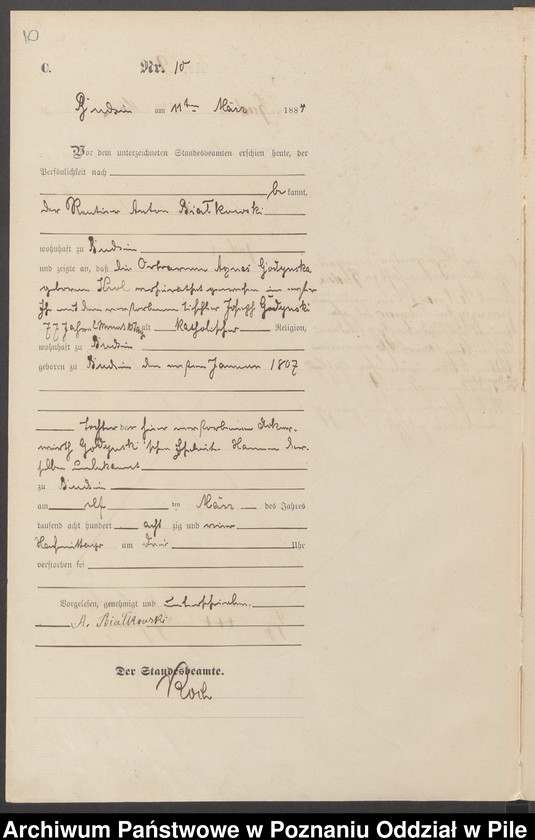 10
C. Nr. 10
Budsin am 11ten März 1884
Vor dem unterzeichneten Standesbeamten erschien heute, der
Persönlichkeit nach
bekannt,
der Rentier Anton Białkowski
wohnhaft zu Budsin
und zeigte an, daß die Ortsarme Agnes Godynska
geborene verheirathet gewesen in erster
Ehe mit dem verstorbenen Tischler Joseph Godynski
77 Jahre 2 Monat 10 Tage alt katholischer Religion,
wohnhaft zu Budsin
geboren zu Budsin den ersten Januar 1807
Tochter der hier verstorbenen Acker-
wirth Godynski'schen Eheleute Namen der-
selben unbekannt
zu Budsin
am elf ten März des Jahres
tausend acht hundert acht zig und vier
Nachmittags um drei Uhr
verstorben sei
Vorgelesen, genehmigt und unterschrieben.
A. Białkowski
Der Standesbeamte.
Koch
Archiwum Państwowe w Poznaniu Oddział w Pile